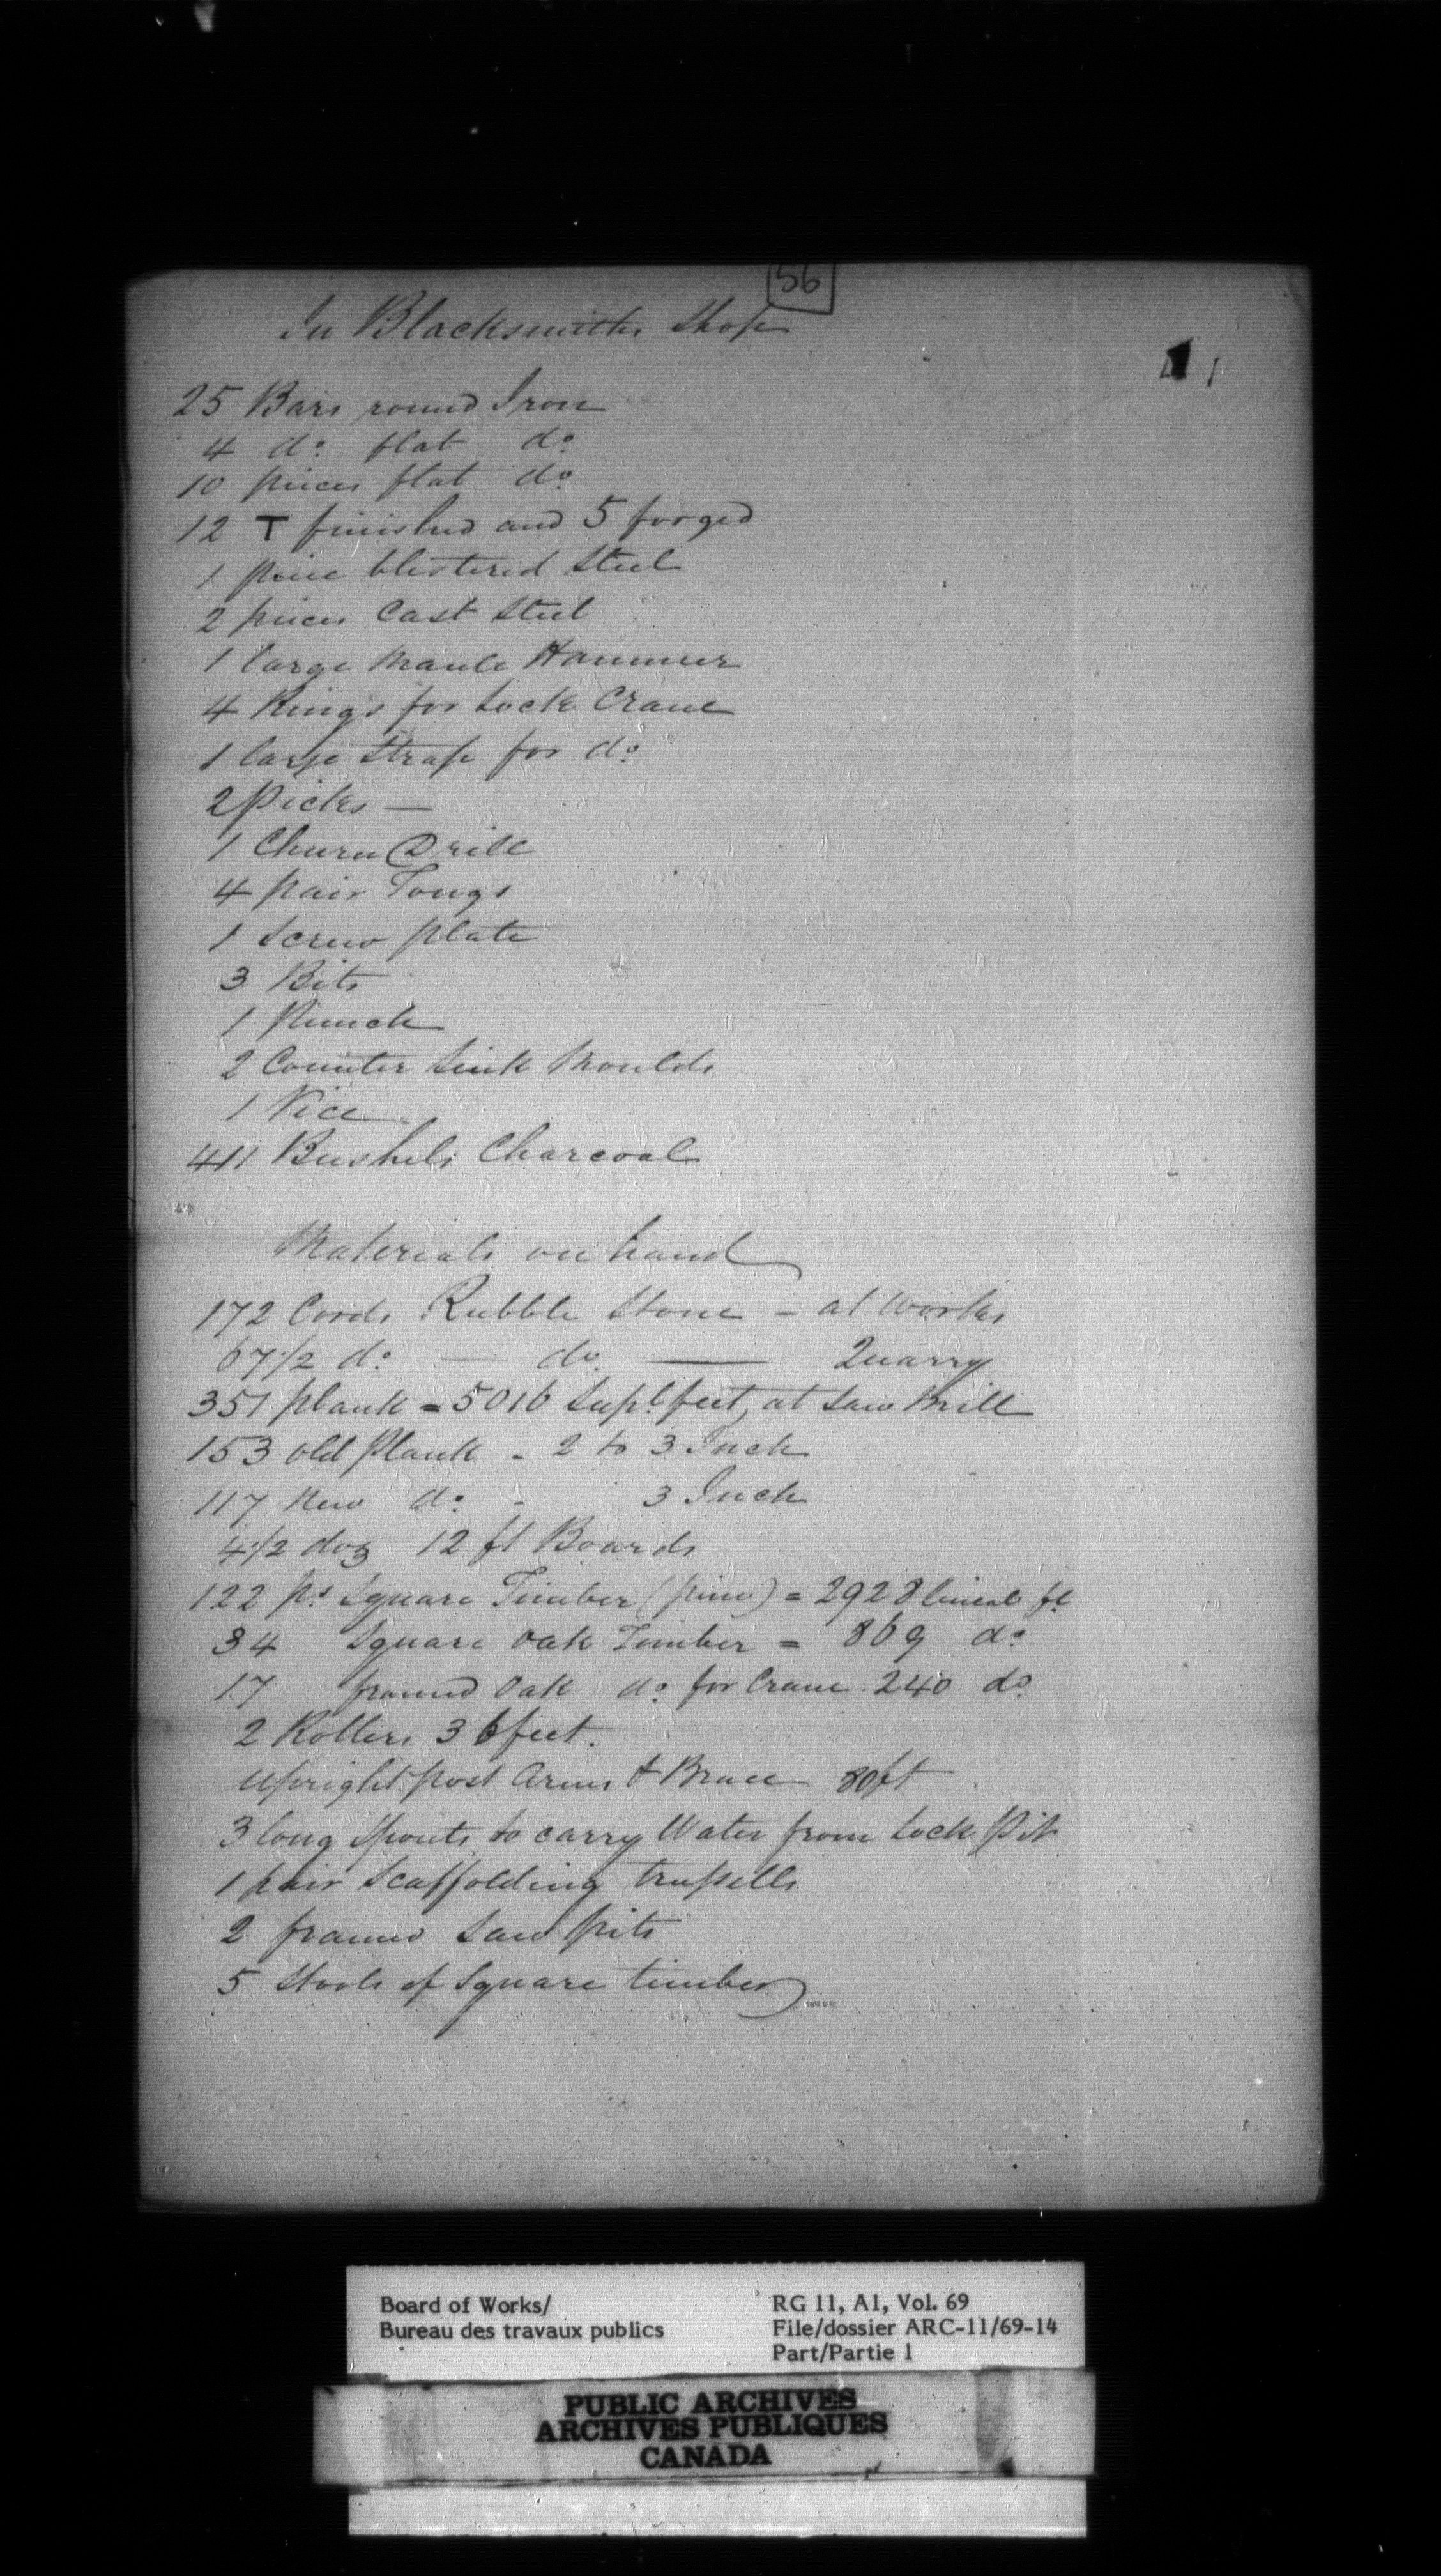 56
In Blacksmiths Shop
25 Bars round Iron
4 do. flat do.
10 pieces flat do.
12 T finished and 5 forged
1 piece blistered Steel
2 pieces Cast Steel
1 large Maule Hammer
4 Rings for Lock Crane
1 large Strap for do.
2 Picks —
1 Churn Drill
4 pair Tongs
1 Screw plate
3 Bits
1 Punch
2 Counter Sink Moulds
1 Vice
411 Bushels Charcoal
Materials on hand
172 Cords Rubble Stone - at Works
67 1/2 do. — do. — Quarry
351 plank = 5016 Supl. feet, at Saw Mill
153 old Plank - 2 to 3 Inch
117 New do. - 3 Inch
4 1/2 doz 12 ft Boards
122 ps. Square Timber (pine) = 2928 lineal ft
34 Square Oak Timber = 869 do.
17 framed Oak do. for Crane 240 do.
2 Rollers 36 feet.
Upright post Arms & Brace 80 ft
3 long Spouts to carry Water from Lock Pit
1 pair Scaffolding trussells
2 framed Saw pits
5 Stools of Square timber
Board of Works/
Bureau des travaux publics
RG 11, A1, Vol. 69
File/dossier ARC-11/69-14
Part/Partie 1
PUBLIC ARCHIVES
ARCHIVES PUBLIQUES
CANADA